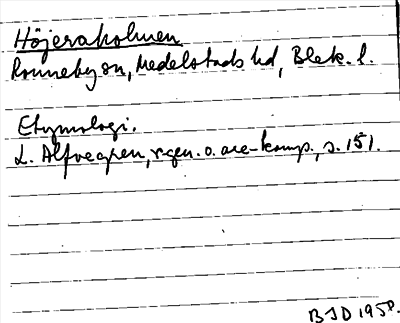 Höjeraholmen
Ronneby sn, Medelstads hd, Blek. l.
Etymologi.
L. Alfvegren, r-gen. o. are-komp., s. 151.
BJD 1958.